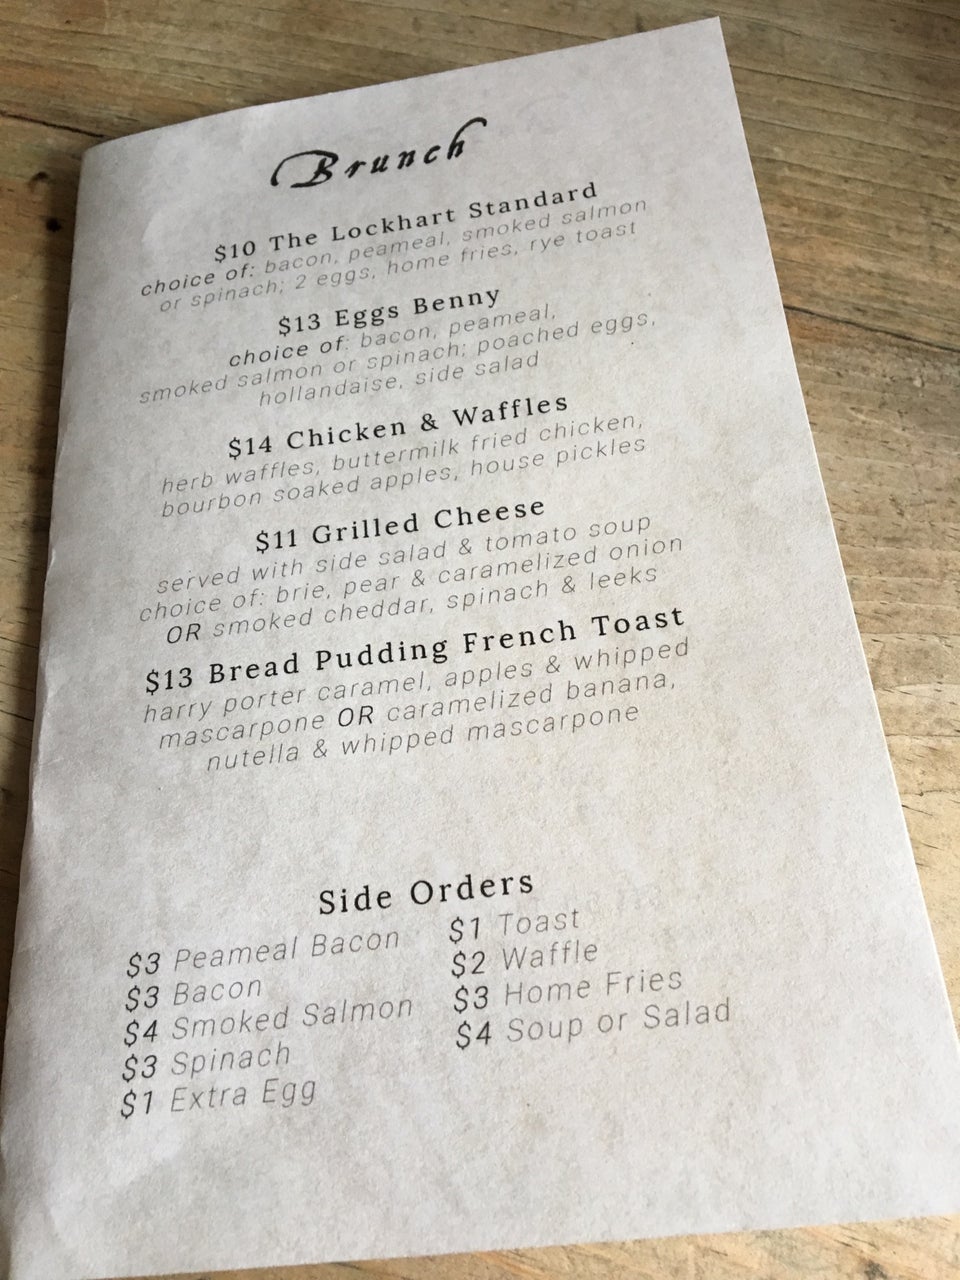 Brunch
$10 The Lockhart Standard
choice of: bacon, peameal, smoked salmon
or spinach; 2 eggs, home fries, rye toast
$13 Eggs Benny
choice of: bacon, peameal,
smoked salmon or spinach; poached eggs,
hollandaise, side salad
$14 Chicken & Waffles
herb waffles, buttermilk fried chicken,
bourbon soaked apples, house pickles
$11 Grilled Cheese
served with side salad & tomato soup
choice of: brie, pear & caramelized onion
OR smoked cheddar, spinach & leeks
$13 Bread Pudding French Toast
harry porter caramel, apples & whipped
mascarpone OR caramelized banana,
nutella & whipped mascarpone
Side Orders
$3 Peameal Bacon
$3 Bacon
$4 Smoked Salmon
$3 Spinach
$1 Extra Egg
$1 Toast
$2 Waffle
$3 Home Fries
$4 Soup or Salad